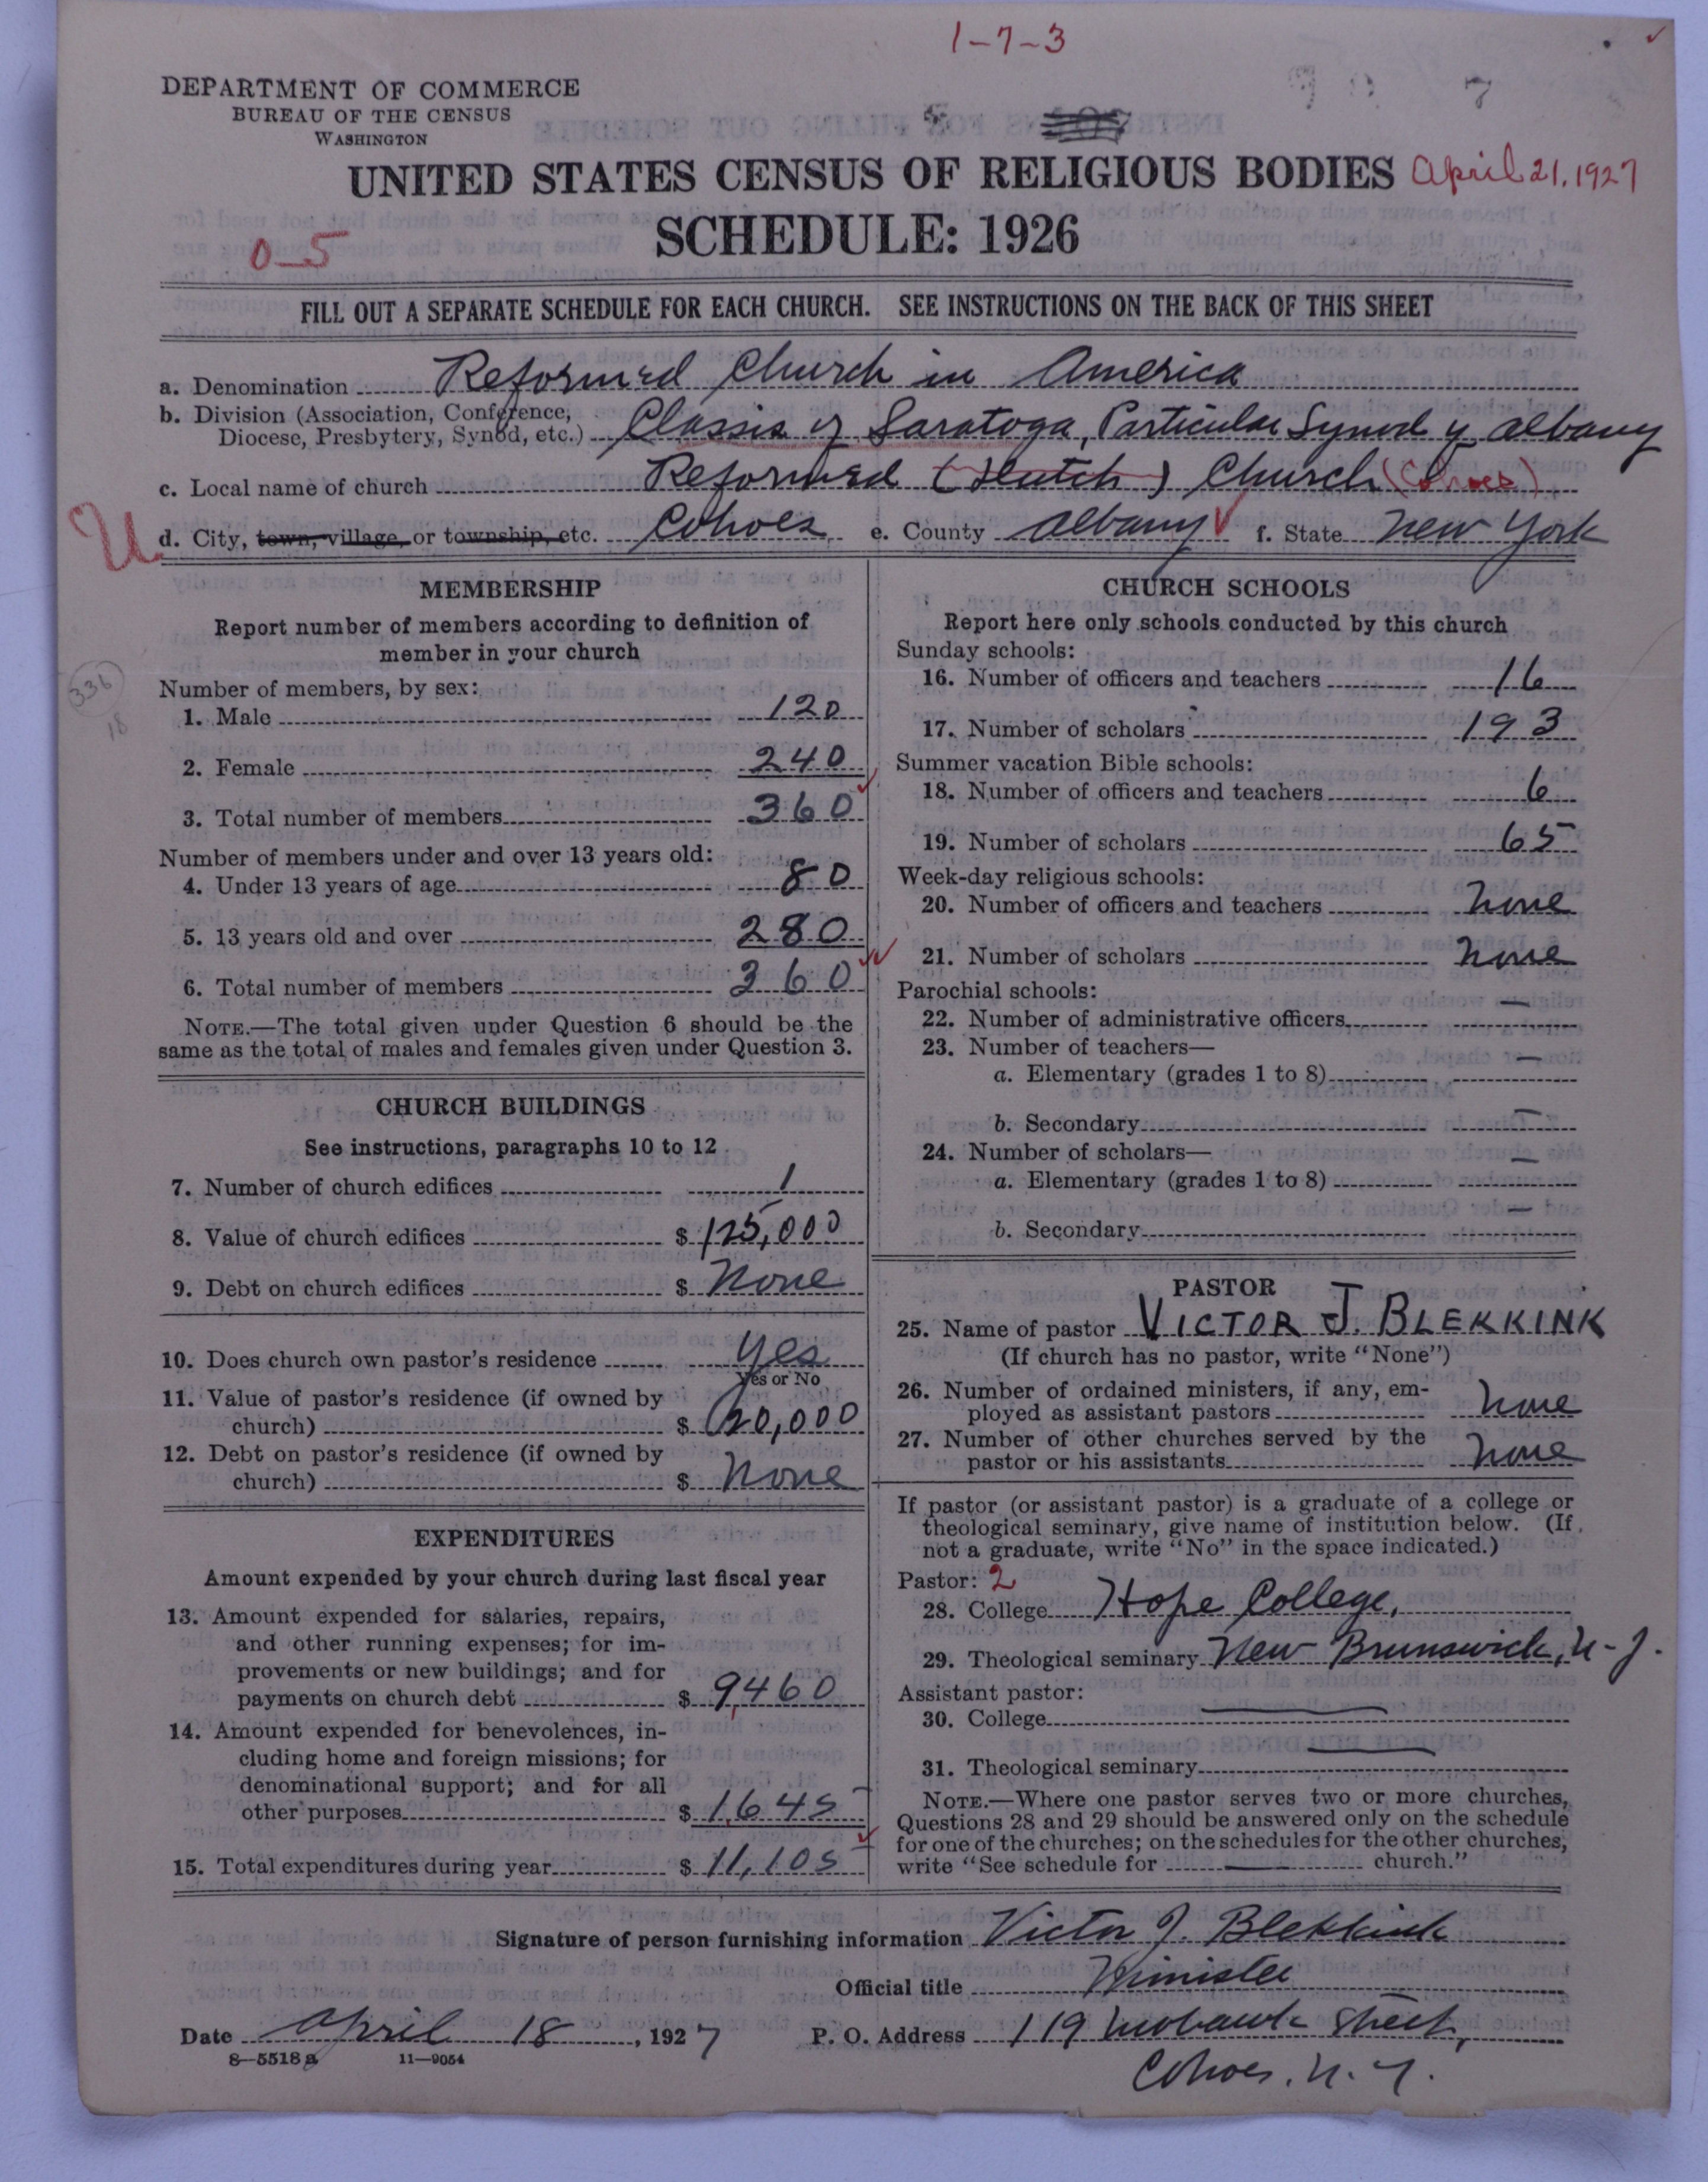 1-7-3
DEPARTMENT OF COMMERCE
BUREAU OF THE CENSUS
WASHINGTON
UNITED STATES CENSUS OF RELIGIOUS BODIES April 21, 1927
SCHEDULE: 1926
0-5
FILL OUT A SEPARATE SCHEDULE FOR EACH CHURCH. SEE INSTRUCTIONS ON THE BACK OF THIS SHEET
a. Denomination Reformed Church in America
b. Division (Association, Conference,
Diocese, Presbytery, Synod, etc.) Classis of Saratoga, Particular Synod of Albany
c. Local name of church Reformed (Dutch) Church (Cohoes)
U
d. City, town, village, or township, etc. Cohoes e. County Albany f. State New York
MEMBERSHIP
Report number of members according to definition of
member in your church
Number of members, by sex:
336
18
1. Male 120
2. Female 240
3. Total number of members 360
Number of members under and over 13 years old:
4. Under 13 years of age 80
5. 13 years old and over 280
6. Total number of members 360
NOTE.—The total given under Question 6 should be the
same as the total of males and females given under Question 3.
CHURCH BUILDINGS
See instructions, paragraphs 10 to 12
7. Number of church edifices 1
8. Value of church edifices $ 125,000
9. Debt on church edifices $ None
10. Does church own pastor's residence Yes
Yes or No
11. Value of pastor's residence (if owned by
church) $ 20,000
12. Debt on pastor's residence (if owned by
church) $ None
EXPENDITURES
Amount expended by your church during last fiscal year
13. Amount expended for salaries, repairs,
and other running expenses; for im-
provements or new buildings; and for
payments on church debt $ 9,460
14. Amount expended for benevolences, in-
cluding home and foreign missions; for
denominational support; and for all
other purposes $ 1,645
15. Total expenditures during year $ 11,105
CHURCH SCHOOLS
Report here only schools conducted by this church
Sunday schools:
16. Number of officers and teachers 16
17. Number of scholars 193
Summer vacation Bible schools:
18. Number of officers and teachers 6
19. Number of scholars 65
Week-day religious schools:
20. Number of officers and teachers None
21. Number of scholars None
Parochial schools:
22. Number of administrative officers —
23. Number of teachers—
a. Elementary (grades 1 to 8) —
b. Secondary —
24. Number of scholars—
a. Elementary (grades 1 to 8) —
b. Secondary —
PASTOR
25. Name of pastor VICTOR J. BLEKKINK
(If church has no pastor, write "None")
26. Number of ordained ministers, if any, em-
ployed as assistant pastors None
27. Number of other churches served by the
pastor or his assistants None
If pastor (or assistant pastor) is a graduate of a college or
theological seminary, give name of institution below. (If
not a graduate, write "No" in the space indicated.)
Pastor: 2
28. College Hope College,
29. Theological seminary New Brunswick, N-J.
Assistant pastor:
30. College —
31. Theological seminary —
NOTE.—Where one pastor serves two or more churches,
Questions 28 and 29 should be answered only on the schedule
for one of the churches; on the schedules for the other churches,
write "See schedule for — church."
Signature of person furnishing information Victor J. Blekkink
Official title Minister
Date April 18, 1927 P. O. Address 119 Mohawk Street,
8—5518 a 11—9054
Cohoes, N. Y.